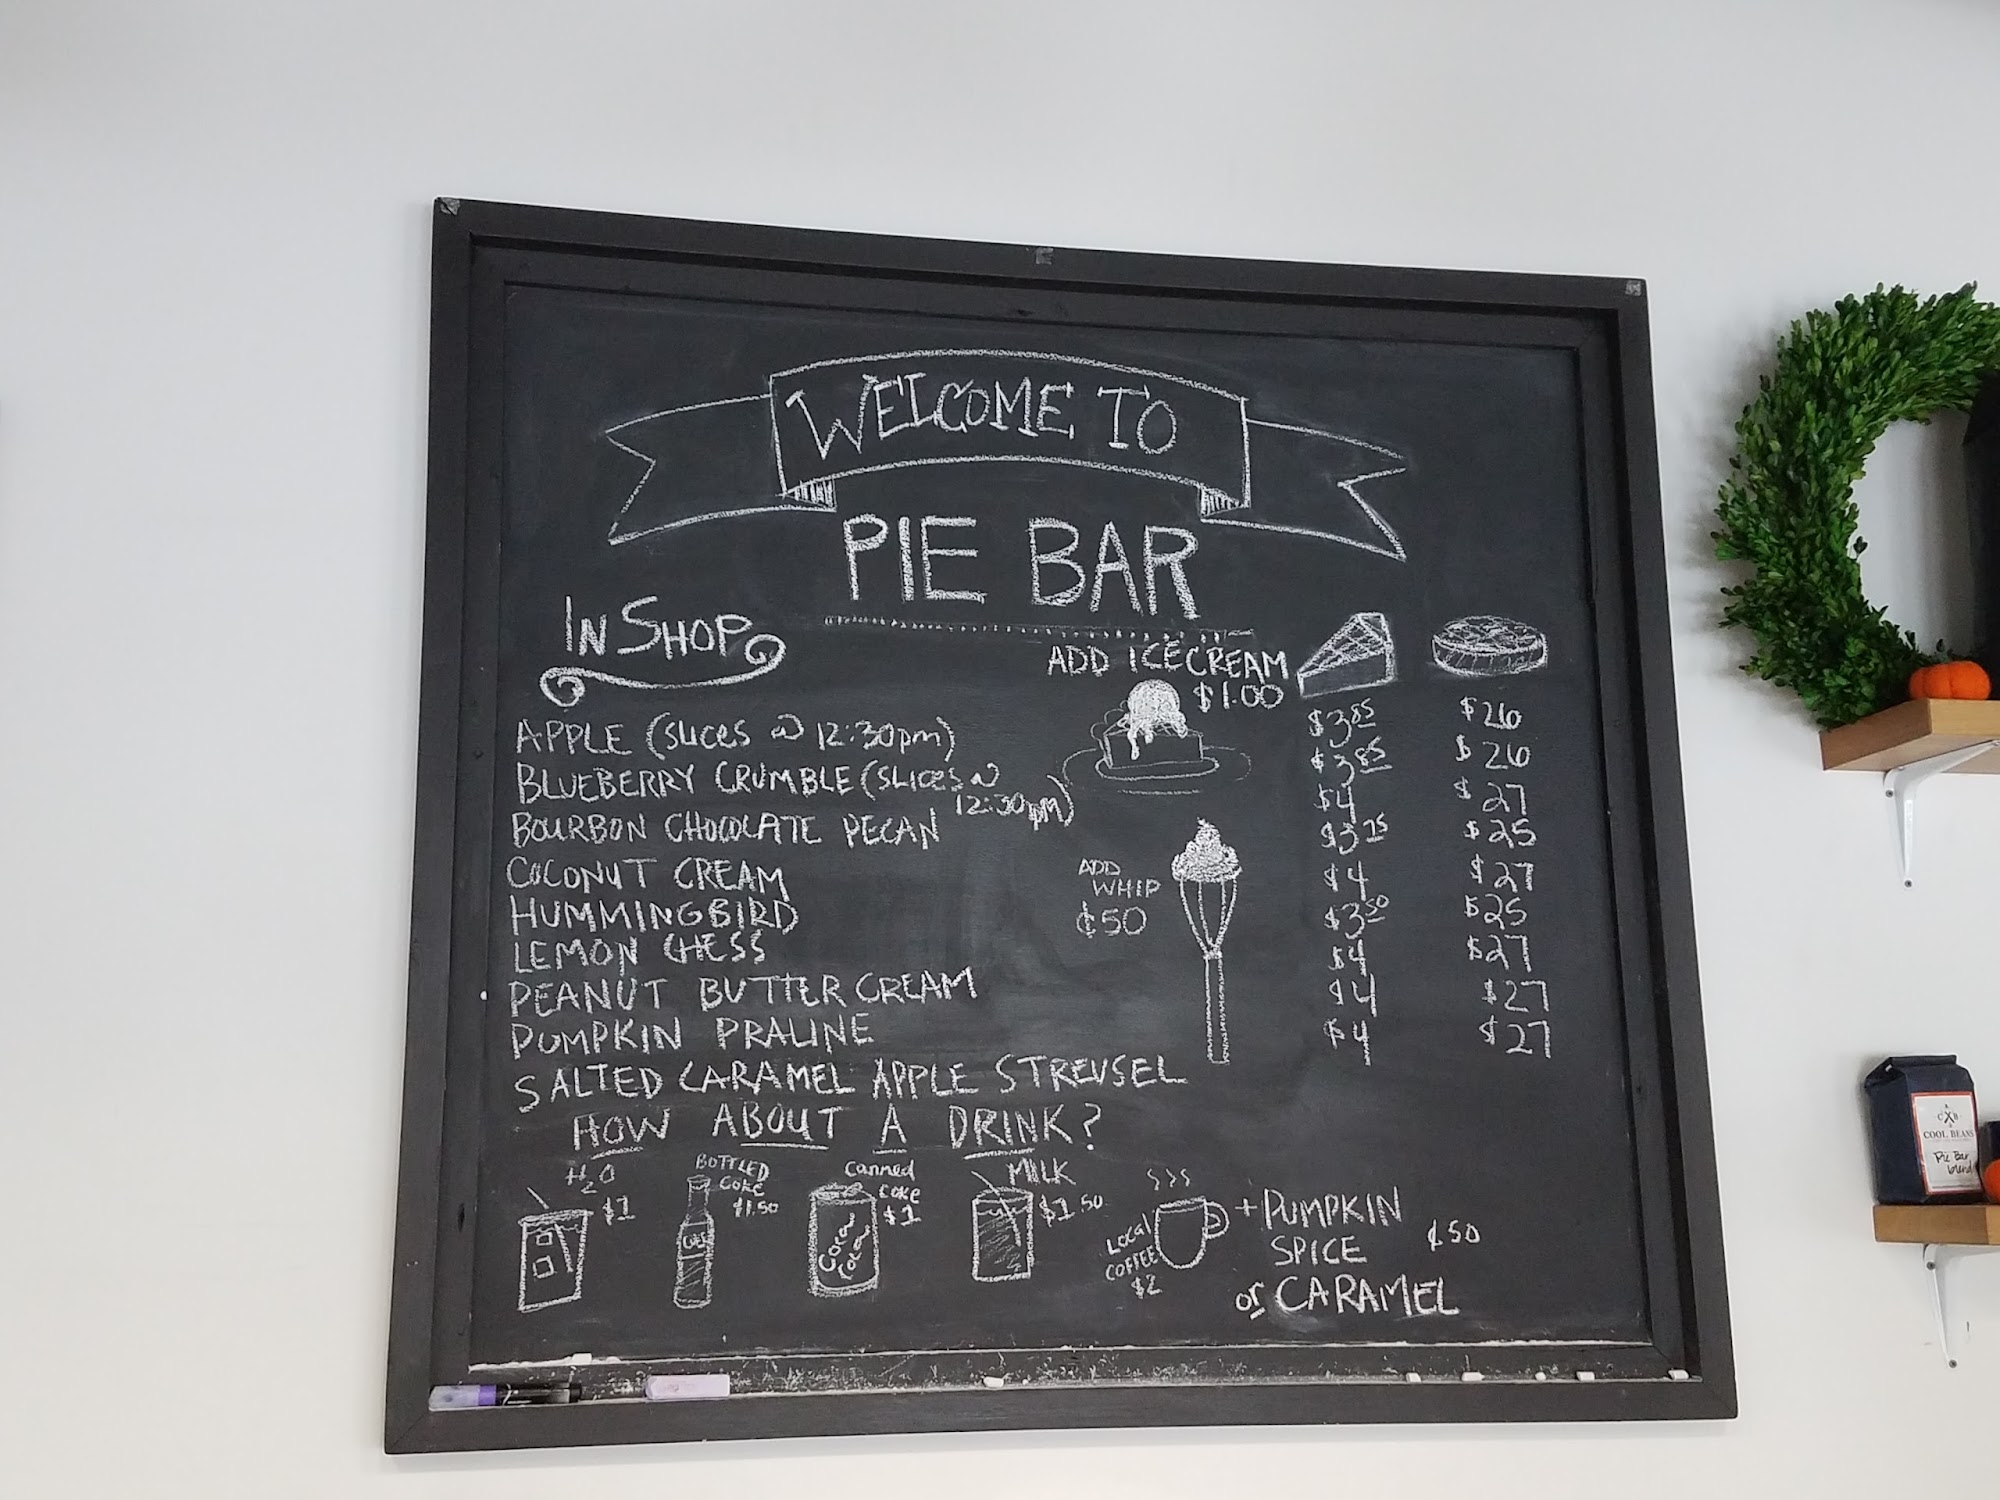 WELCOME TO
PIE BAR
IN SHOP
ADD ICE CREAM
$1.00
APPLE (SLICES @ 12:30pm) $3.85 $26
BLUEBERRY CRUMBLE (SLICES @ 12:30pm) $3.85 $26
BOURBON CHOCOLATE PECAN $4 $27
COCONUT CREAM $3.75 $25
HUMMINGBIRD $4 $27
LEMON CHESS $3.50 $25
PEANUT BUTTER CREAM $4 $27
PUMPKIN PRALINE $4 $27
SALTED CARAMEL APPLE STREUSEL $4 $27
ADD
WHIP
¢50
HOW ABOUT A DRINK?
H2O
$1
BOTTLED
COKE
$1.50
COKE
Canned
COKE
$1
Coca
Cola
MILK
$1.50
LOCAL
COFFEE
$2
+ PUMPKIN
SPICE
or CARAMEL
¢50
CXB
COOL BEANS
Pie Bar
blend